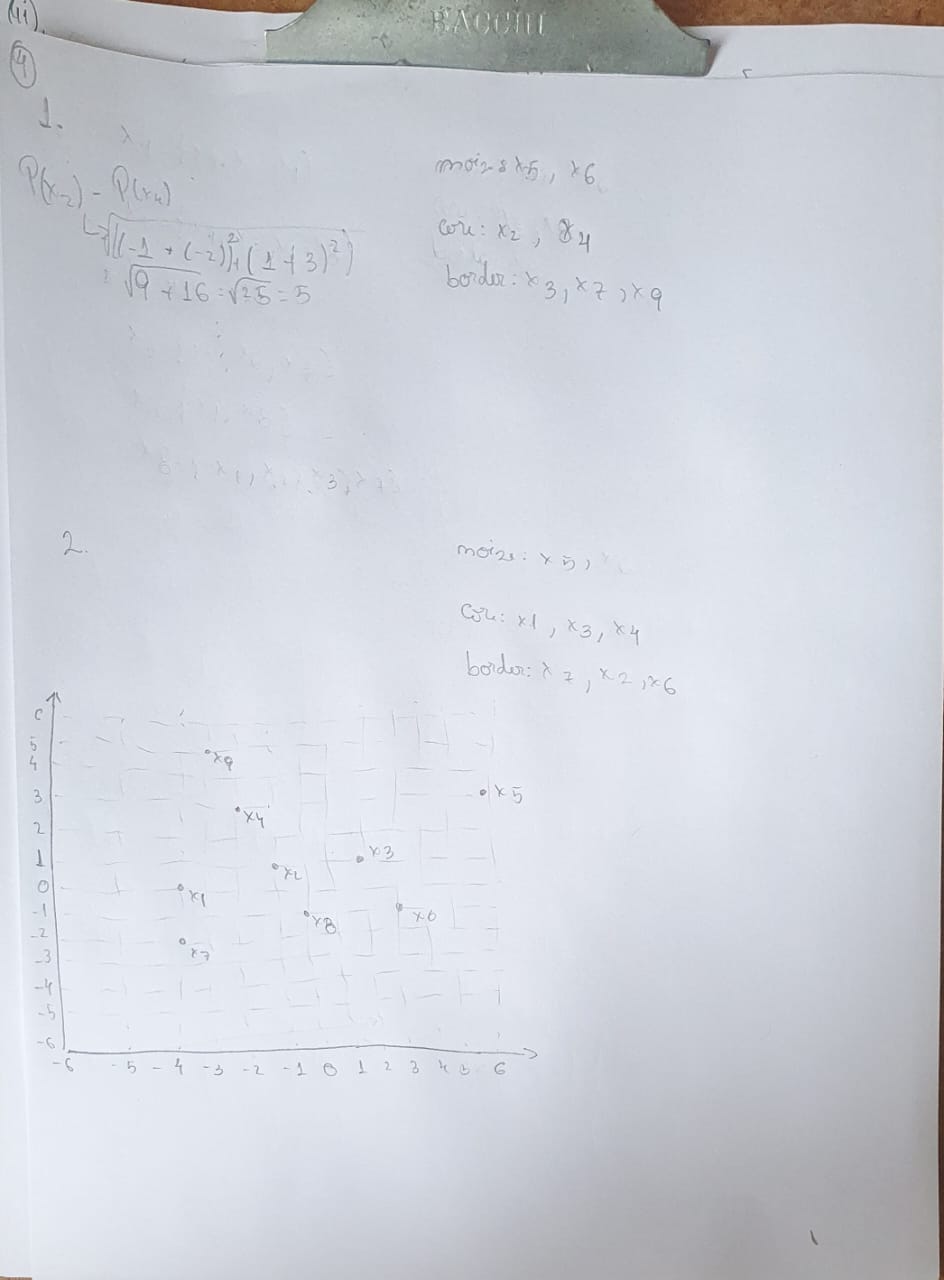 BACCHI
(ii)
4
1.
P(x2) - P(x4)
√((-1 + (-2))² + (1+3)²)
√9 + 16 = √25 = 5
noise x5, x6
core: x2, x4
border: x3, x7, x9
2.
noise: x5,
core: x1, x3, x4
border: x7, x2, x6
5
4
3
2
1
0
-1
-2
-3
-4
-5
-6
x9
x4
x5
x3
x2
x1
x8
x6
x7
-6 -5 -4 -3 -2 -1 0 1 2 3 4 5 6